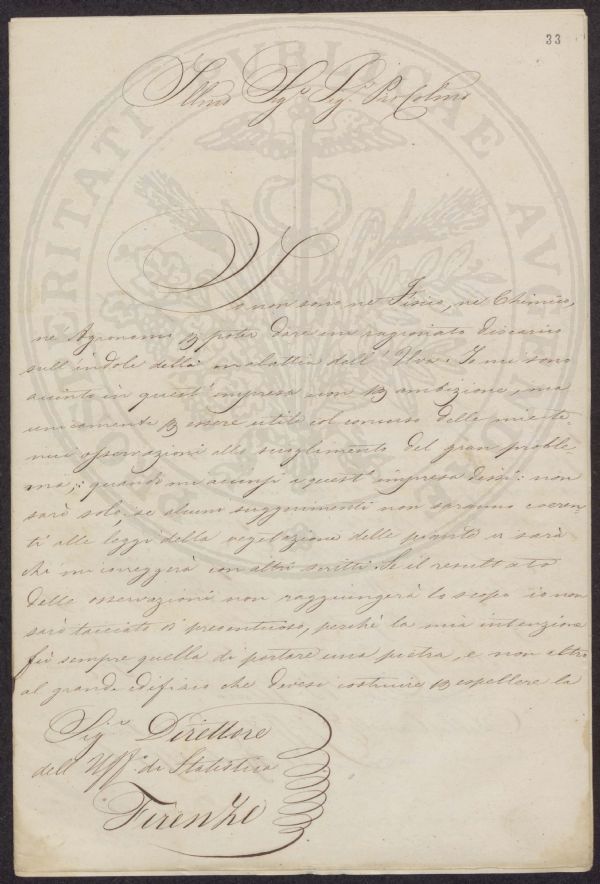 33
Illmo Sigr Sigr Pne Colmo
Io non sono nè Fisico, nè Chimico,
nè Agronomo p poter dare un ragionato discarico
sull'indole della malattia dell'Uva: Io mi sono
accinto in quest'impresa non p ambizione, ma
unicamente p essere utile col concorso delle mie te-
nui osservazioni allo scioglimento del gran proble-
ma,: quando mi accinsi a quest'impresa dissi: non
sarò solo, se alcuni suggerimenti non saranno coeren-
ti alle leggi della vegetazione delle piante vi sarà
chi mi correggerà con altri scritti. Se il resultato
delle osservazioni non raggiungerà lo scopo io non
sarò tacciato di presentuoso, perchè la mia intenzione
fù sempre quella di portare una pietra, e non altro
al grande edifizio che devesi costruire p espellere la
Sigr Direttore
dell'Uff. di Statistica
Firenze
PROSPERITATI PVBLICAE AVGENDAE